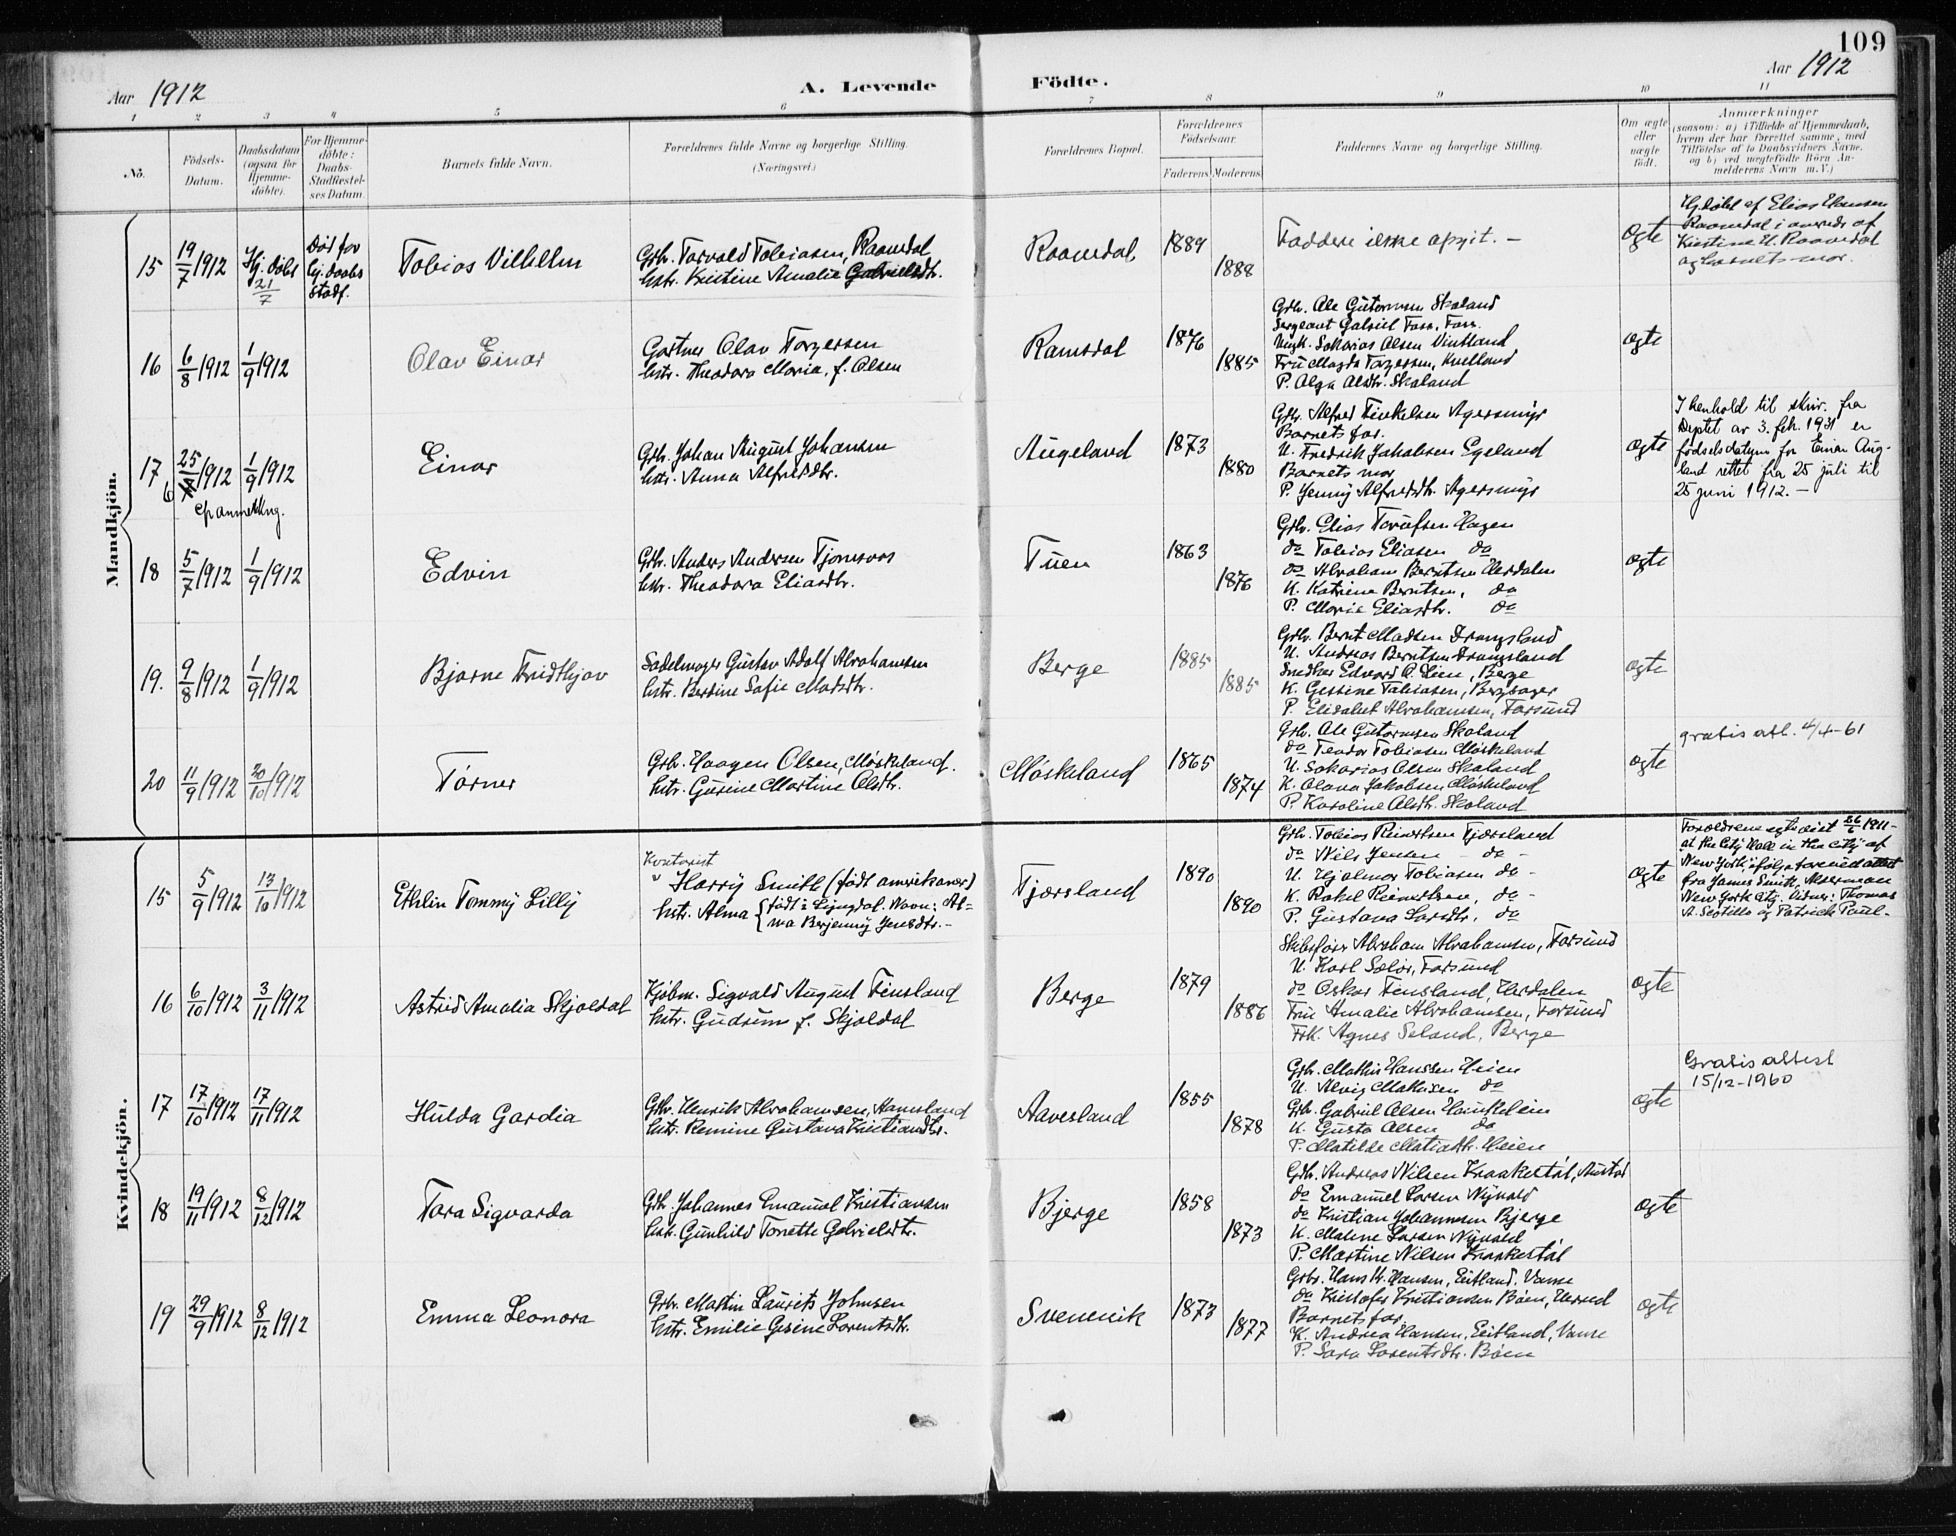 109
Aar 1912
A. Levende Födte.
Aar 1912
1 2 3 4 5 6 7 8 9 10 11
No.
Födsels-Datum.
Daabsdatum (ogsaa for Hjemme-döbte).
For Hjemme-döbte: Daabs-Stadfæstel-ses Datum
Barnets fulde Navn.
Forældrenes fulde Navne og borgerlige Stilling.
(Næringsvei.)
Forældrenes Bopæl.
Forældrenes Födselsaar.
Faderens. Moderens.
Faddernes Navne og borgerlige Stilling.
Om ægte eller uægte födt.
Anmærkninger
(saasom: a) i Tilfælde af Hjemmedaab,
hvem der har forrettet samme, med
Tilföielse af to Daabsvidners Navne.
og b) ved uægtefödte Börn An-
melderens Navn m. V.)
Mandkjön.
15 19/7 1912 Hj. döbt 21/7
Död for hj. daabs stadf.
Tobias Vilhelm
Grb. Torvald Tobiasen, Raamdal
hstr. Kristine Amalie Gabrielsdtr.
Raamdal 1889 1888
Faddere ikke opgit. —
ægte
Hj. döbt af Elias Hansen
Raamdal i overvær af
Kirstine H. Raamdal
og barnets mor.
16 6/8 1912 1/9 1912
Olav Einar
Gartner Olav Torgersen
hstr. Theodora Maria, f. Olsen
Ramsdal 1876 1885
Grb. Ole Guttormsen Skoland
Sergeant Gabriel Foss, Foss.
Ungk. Sakarias Olsen
Fru Magda Torgersen, Kvelland
P. Olga Olsdtr. Skoland
ægte
17 25/6 1912 1/9 1912
cfr anmerkng.
Einar
Grb. Johan August Johansen
hstr. Anna Alfredsdtr.
Augeland 1873 1880
Grb. Alfred Terkelsen Agersmyr
Barnets far.
U. Fredrik Jakobsen Egeland
Barnets mor
P. Jenny Alfredsdtr. Agersmyr
ægte
I henhold til skriv. fra
Deptet av 3. feb. 1931 er
födselsdatum for Einar Aug-
land rettet fra 25 juli til
25 juni 1912. —
18 5/7 1912 1/9 1912
Edvin
Grb. Anders Andersen Tjomsvos
hstr. Theodora Eliasdtr.
Tuen 1863 1876
Grb. Elias Torufsen Hagen
do Tobias Eliasen do
do Abraham Berntsen Herdalen
K. Katrine Berntsen, do
P. Marie Eliasdtr. do
ægte
19. 9/8 1912 1/9 1912
Bjarne Fridthjov
Sadelmager Gustav Adolf Abrahamsen
hstr. Berdine Sofie Madsdtr.
Berge 1885 1885
Grb. Bernt Madsen Drangsland
U. Andreas Berntsen Drangsland
Snedker Edvard O. Lien, Berge
K. Gesine Tobiasen, Bergsager
P. Elisabet Abrahamsen, Farsund
ægte
20 11/9 1912 20/10 1912
Torner
Grb. Haagen Olsen, Möskeland.
hstr. Gurine Martine Olsdtr.
Möskeland 1865 1874
Grb. Ole Guttormsen Skoland
do Teodor Tobiasen Möskeland
U. Sakarias Olsen Skoland
K. Olava Jakobsen Möskeland
P. Karoline Olsdtr. Skoland
ægte
gratis att. 4/4-61
Kvindekjön.
15 5/9 1912 13/10 1912
Ethlin Tommy Lilly
Harry Smith (födt amerikaner)
hstr. Alma {födt i Lyngdal. Navn: Al-
ma Berjenny Jensdtr. -
Tjærsland 1890 1890
Grb. Tobias Reinertsen Tjærsland
do Nils Jensen — do -
U. Hjalmar Tobiasen do -
K. Rakel Reinertsen, do -
P. Gustava Larsdtr. do
ægte
Forældrene egteviet 26/6 1911-
at the City Hall in the City of
New York, ifölge foreviist attest
fra James Smith, Alderman
New York City. Vidner: Thomas
A. Scotillo og Patrick Paul.-
16 6/10 1912 3/11 1912
Astrid Amalia Skjoldal
Kjöbm. Sigvald August Finsland
hstr. Gudrun f. Skjoldal
Berge 1879 1886
Skibsförer Abraham Abrahamsen, Farsund
U. Karl Salös, Farsund
do Oskar Finsland, Herdalen
Fru Amalie Abrahamsen, Farsund
Frk. Agnes Seland, Berge
ægte
17 17/10 1912 17/11 1912
Hulda Gardia
Grb. Henrik Abrahamsen, Hamsland
hstr. Remine Gustava Kristiansdtr.
Aavesland 1855 1878
Grb. Mathis Hanssen Heien
U. Alvig Mathisen do
Grb. Gabriel Olsen
K. Gusta Olsen do
P. Matilde Matiasdtr. Heien
ægte
Gratis attest
15/12-1960
18 19/11 1912 8/12 1912
Tora Sigvarda
Grb. Johannes Emanuel Kristiansen
hstr. Gunhild Tonette Gabrielsdtr.
Bjerge 1858 1873
Grb. Andreas Nilsen Kraakestöl, Austad
do Emanuel Larsen Nykold
do Kristian Johannesen Bjerge
K. Malene Larsen Nykold
P. Martine Nilsen Kraakestöl
ægte
19 29/9 1912 8/12 1912
Emma Leonora
Grb. Martin Laurits Johnsen
hstr. Emilie Gesine Lorentsdtr.
Svenevik 1873 1877
Grb. Hans K. Hansen, Eitland, Vanse
do Kristofer Kristiansen Böen, Herred
Barnets far
K. Andrea Hansen, Eitland, Vanse
P. Sara Lorentsdtr. Böen
ægte